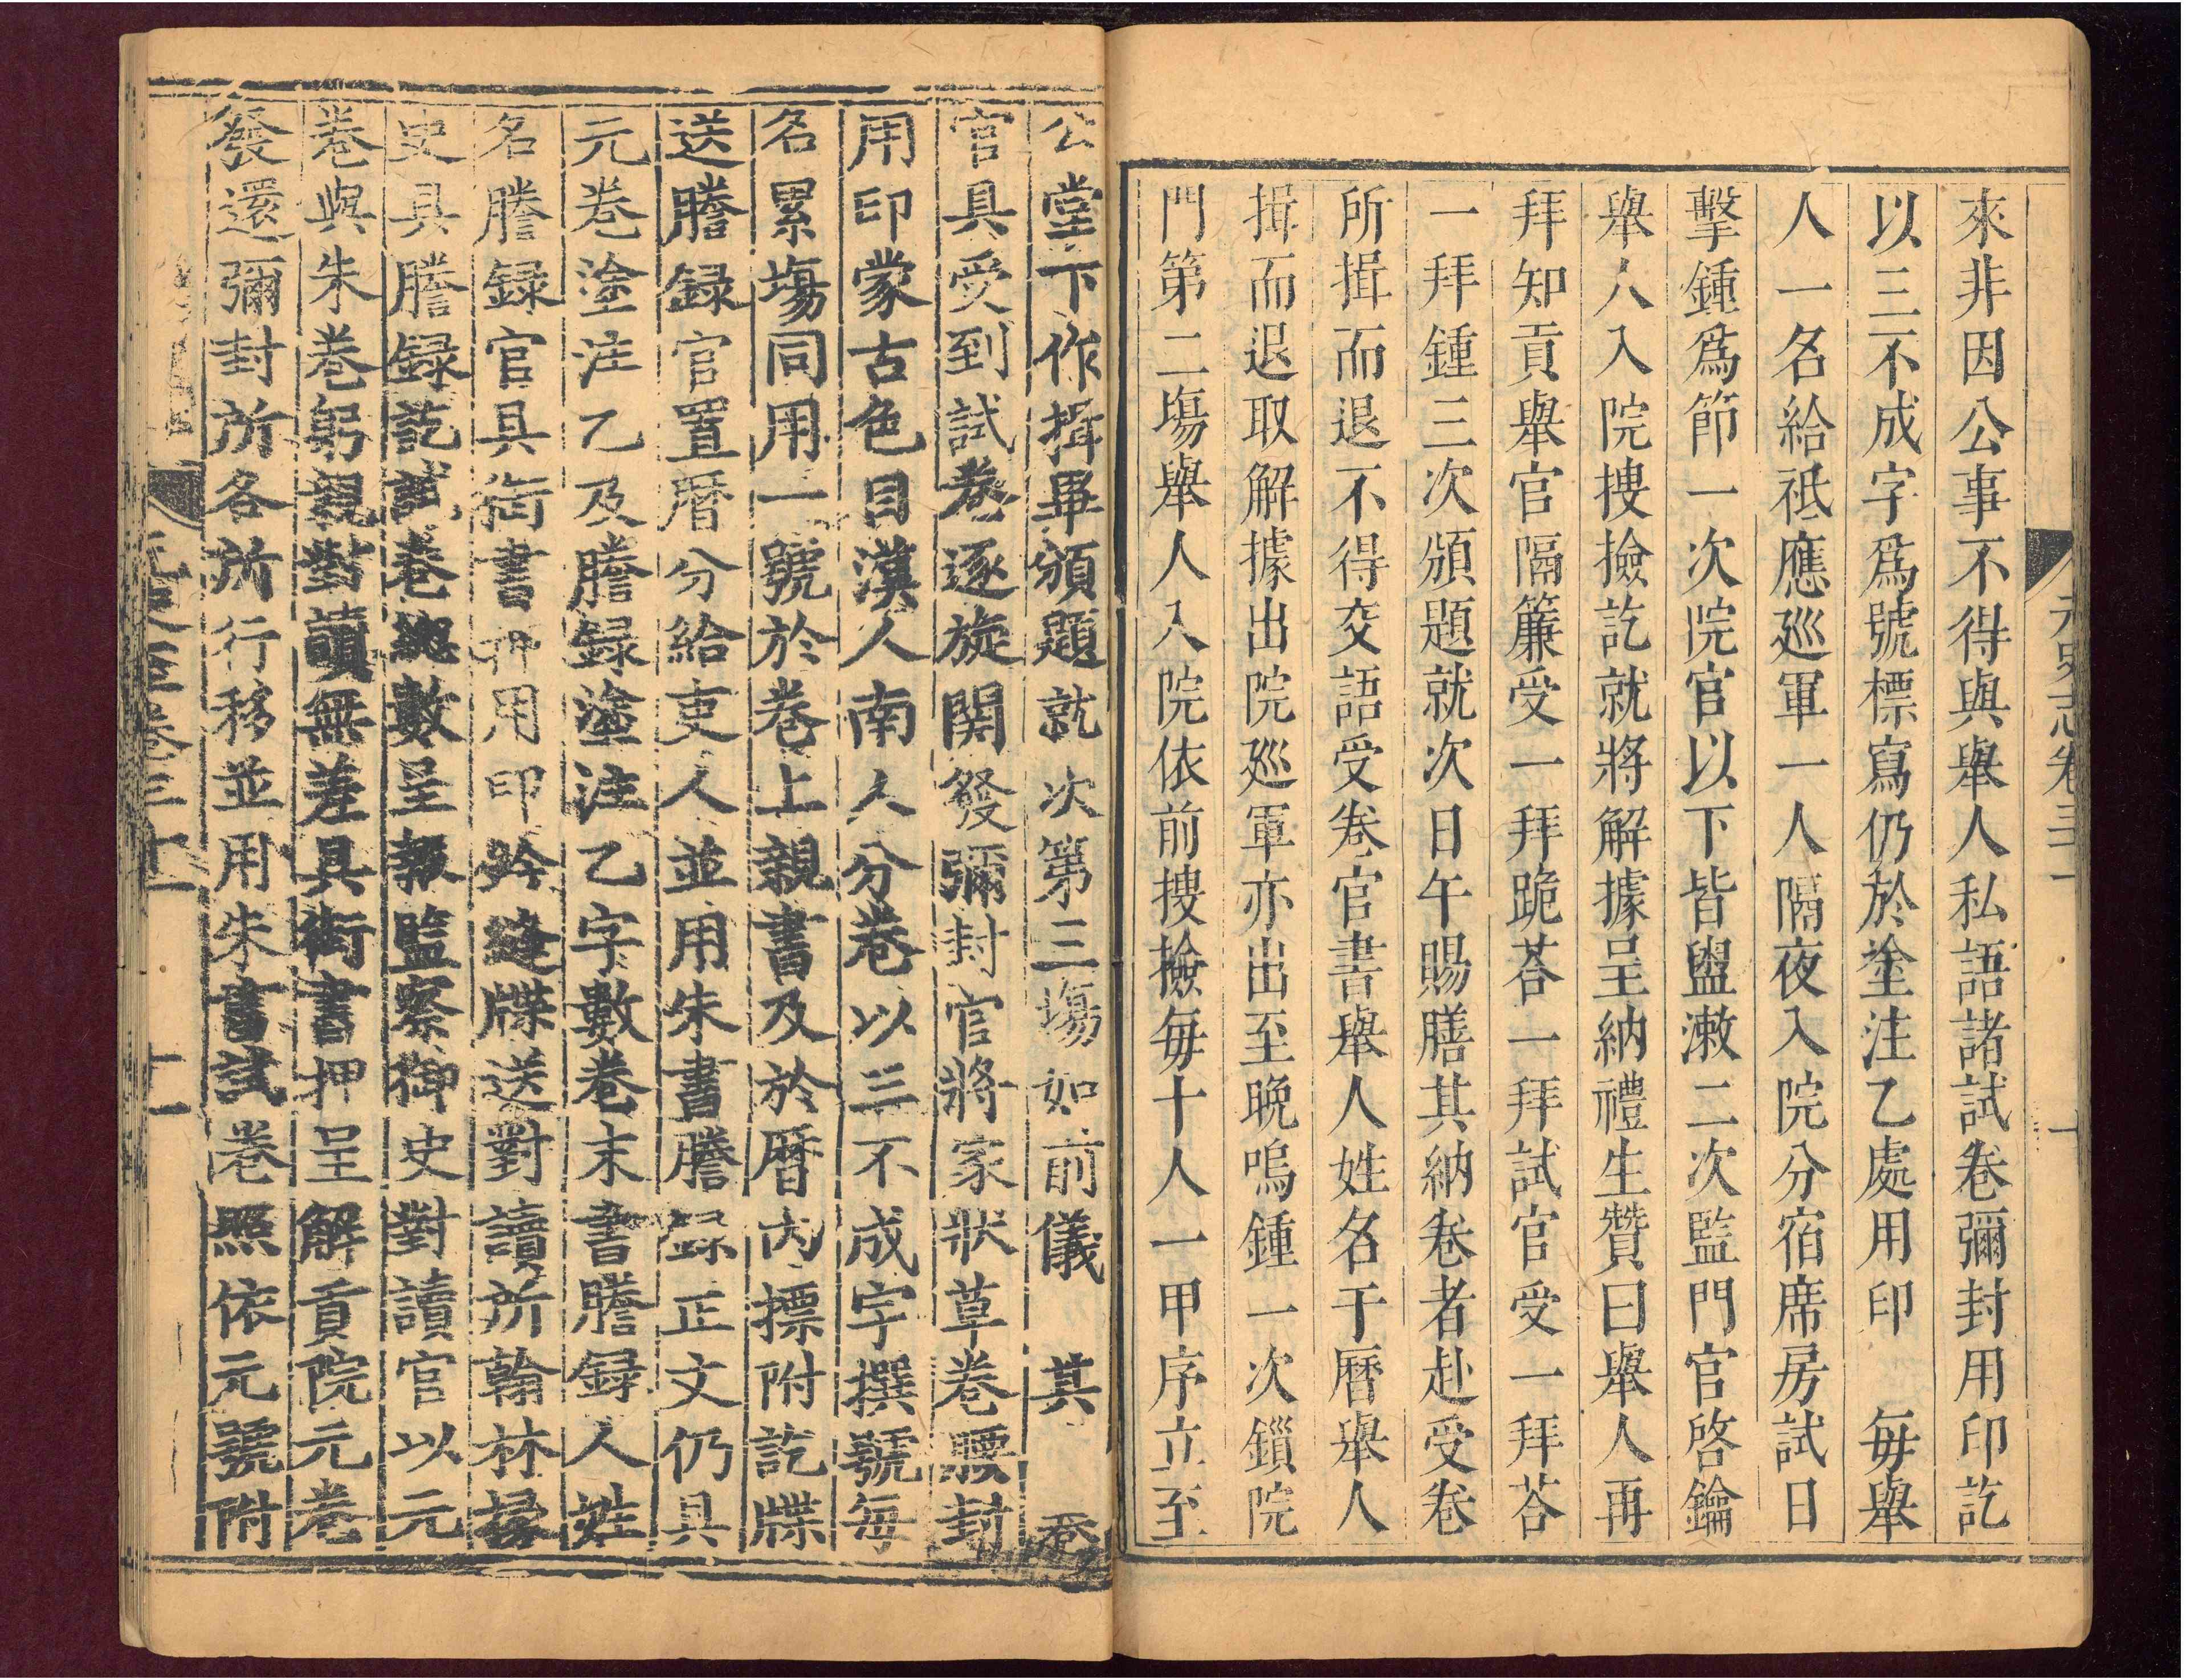 元史志卷三十一
來非因公事不得與舉人私語諸試卷彌封用印訖
以三不成字爲號標寫仍於塗注乙處用印　每舉
人一名給祗應廵軍一人隔夜入院分宿席房試日
擊鍾爲節一次院官以下皆盥漱二次監門官啓鑰
舉人入院搜撿訖就將解據呈納禮生贊曰舉人再
拜知貢舉官隔簾受一拜跪荅一拜試官受一拜荅
一拜鍾三次頒題就次日午賜膳其納卷者赴受卷
所揖而退不得交語受卷官書舉人姓名于曆舉人
揖而退取解據出院廵軍亦出至晚鳴鍾一次鎻院
門第二塲舉人入院依前搜撿每十人一甲序立至
公堂下作揖畢頒題就次第三塲如前儀　其　卷
官具受到試卷逐旋関發彌封官將家狀草卷腰封
用印蒙古色目漢人南人分卷以三不成字撰號每
名累塲同用一號於卷上親書及於曆内摽附訖牒
送謄録官置曆分給吏人並用朱書謄録正文仍具
元卷塗注乙及謄録塗注乙字數卷末書謄録人姓
名謄録官具銜書押用印鈐縫牒送對讀所翰林掾
史具謄録訖試卷緫數呈報監察御史對讀官以元
卷與朱卷躬親對讀無差具銜書押呈解貢院元卷
發還彌封所各所行移並用朱書試卷照依元號附
元史志卷三十一　十一